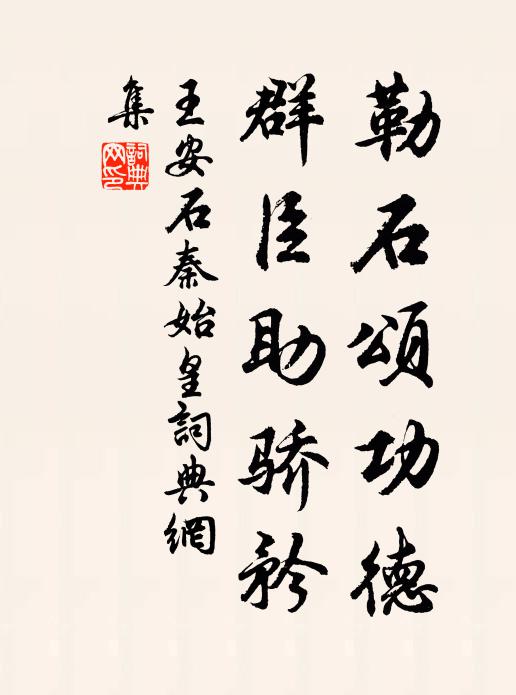 勒石頌功德
群臣助骄矜
王安石秦始皇詞典網
集
詞典
网印